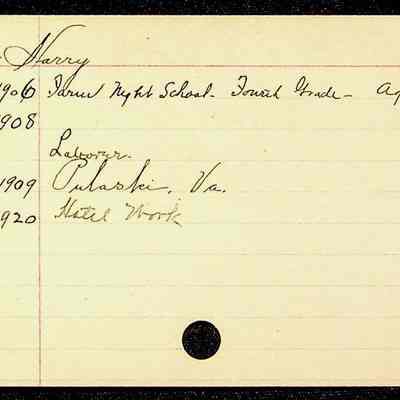 Harry
1906 Farm Night School - Fourth Grade - Ag
1908
Laborer.
1909 Pulaski, Va.
1920 Hotel Work